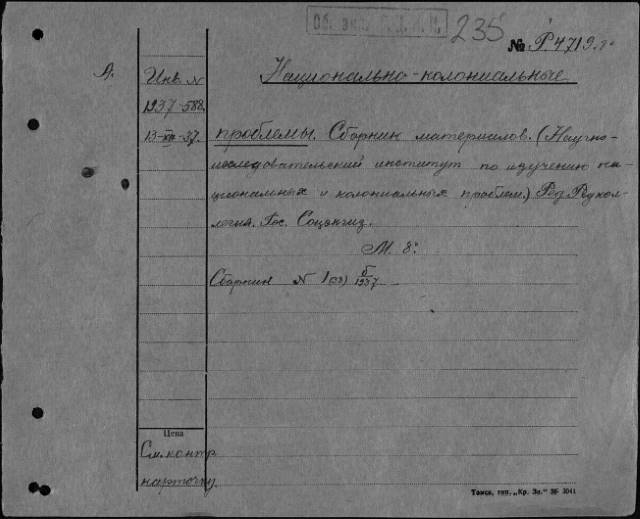 Об. экз.
235
№ Р4719
А.
Инв. N
Национально-колониальные
1937-588.
13-XII-37.
проблемы. Сборник материалов. (Научно-
исследовательский институт по изучению на-
циональных и колониальных проблем.) Ред. Редкол-
легия. Гос. Соцэкгиз.
М. 8°
Сборник N 1 (38) 1937
Цена
См. контр.
карточку.
Томск, тип. „Кр. Зн." ЗБ 3041